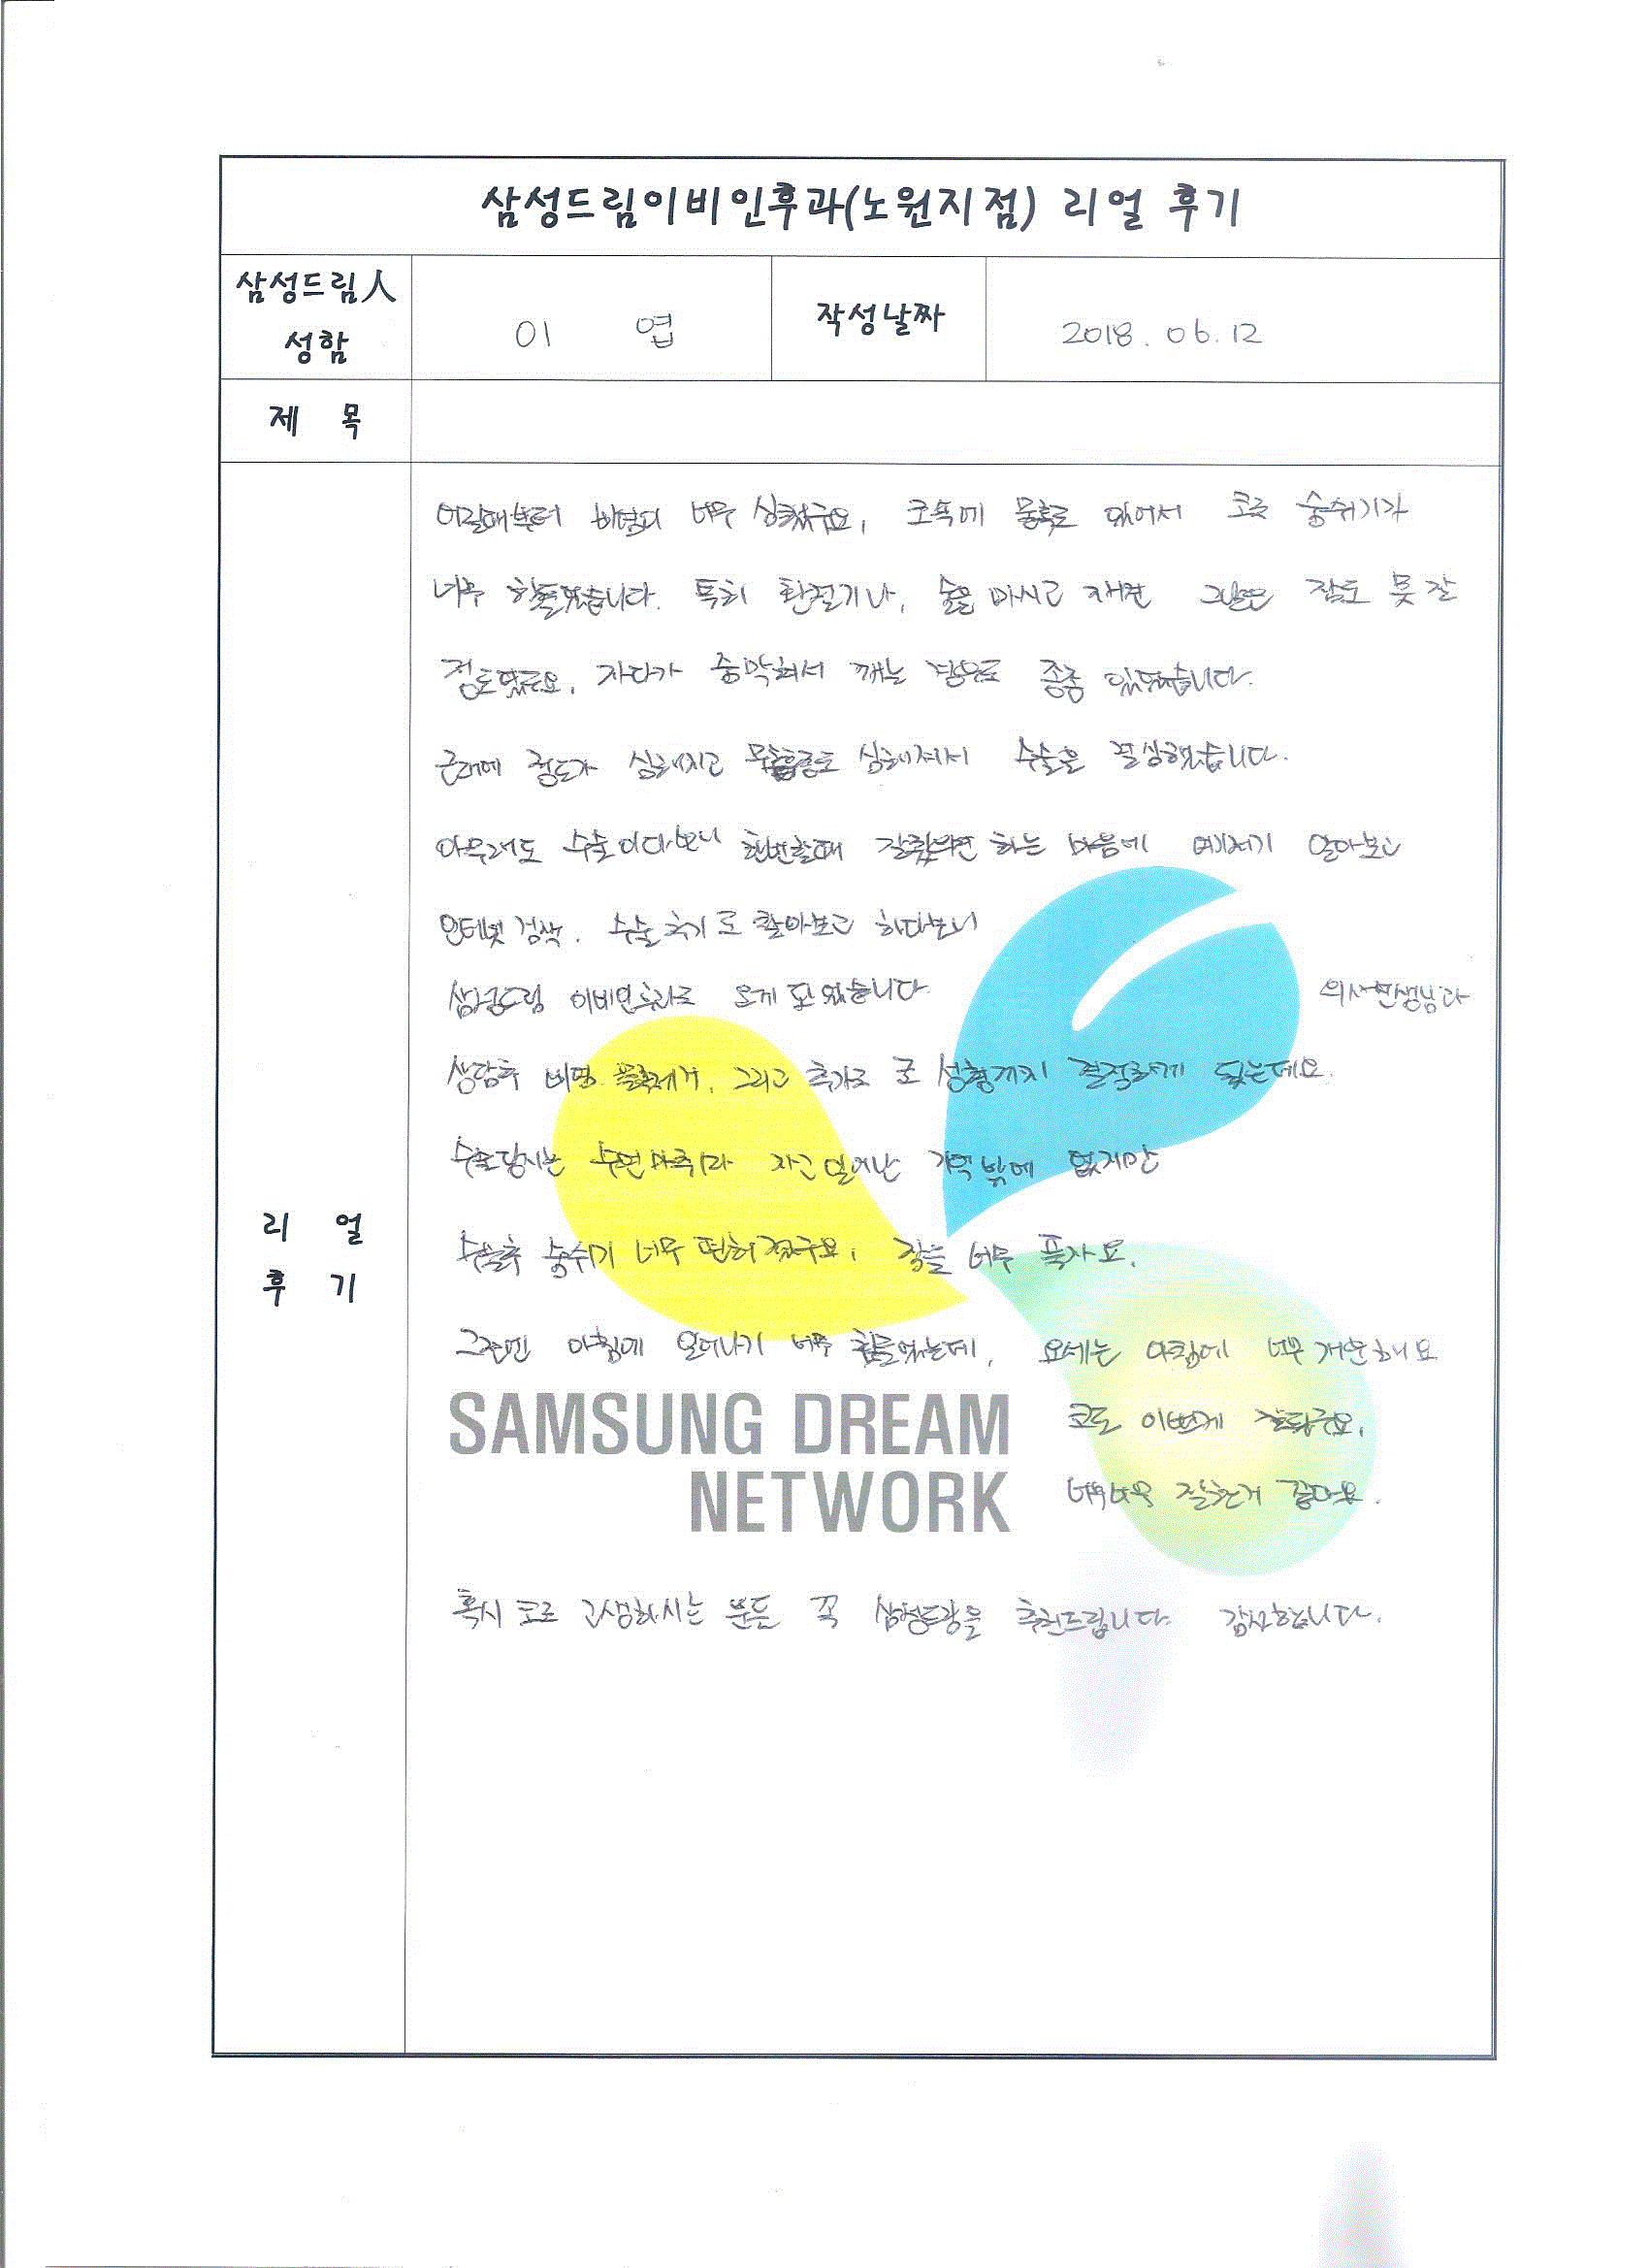 삼성드림이비인후과(노원지점) 리얼 후기
삼성드림人
성함
이 엽
작성날짜
2018. 06. 12
제 목
리 얼
후 기
어릴때부터 비염이 너무 심했구요, 코속에 물혹도 있어서 코로 숨쉬기가
너무 힘들었습니다. 특히 환절기나, 술을 마시고 자면 그날은 잠도 못 잘
정도였구요, 자다가 숨막혀서 깨는 경우도 종종 있었습니다.
근래에 정도가 심해지고 무호흡증도 심해져서 수술을 결심했습니다.
아무래도 수술이다보니 한번할때 잘했으면 하는 마음에 여기저기 알아보고
인터넷 검색. 수술후기도 찾아보고 하다보니
삼성드림 이비인후과로 오게 되었습니다 의사선생님과
상담후 비염 물혹제거, 그리고 추가로 코 성형까지 결정하게 됬는데요.
수술당시는 수면마취라 자고 일어난 기억밖에 없지만
수술후 숨쉬기 너무 편해졌구요, 잠을 너무 푹자요.
그전엔 아침에 일어나기 너무 힘들었는데, 요세는 아침에 너무 개운해요
SAMSUNG DREAM
NETWORK
코도 이쁘게 잘됐구요.
너무너무 잘한거 같아요.
혹시 코로 고생하시는 분들 꼭 삼성드림을 추천드립니다. 감사합니다.